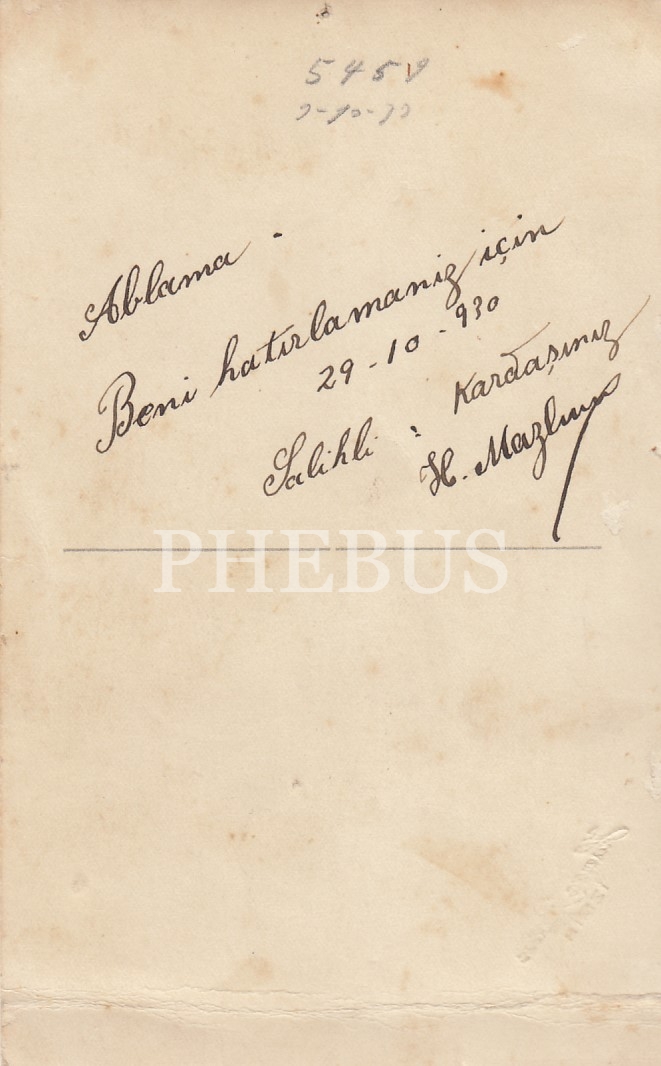 5459
Ablama -
Beni hatırlamanız için
29-10-930
Salihli : Kardaşınız
H. Mazlum
PHEBUS